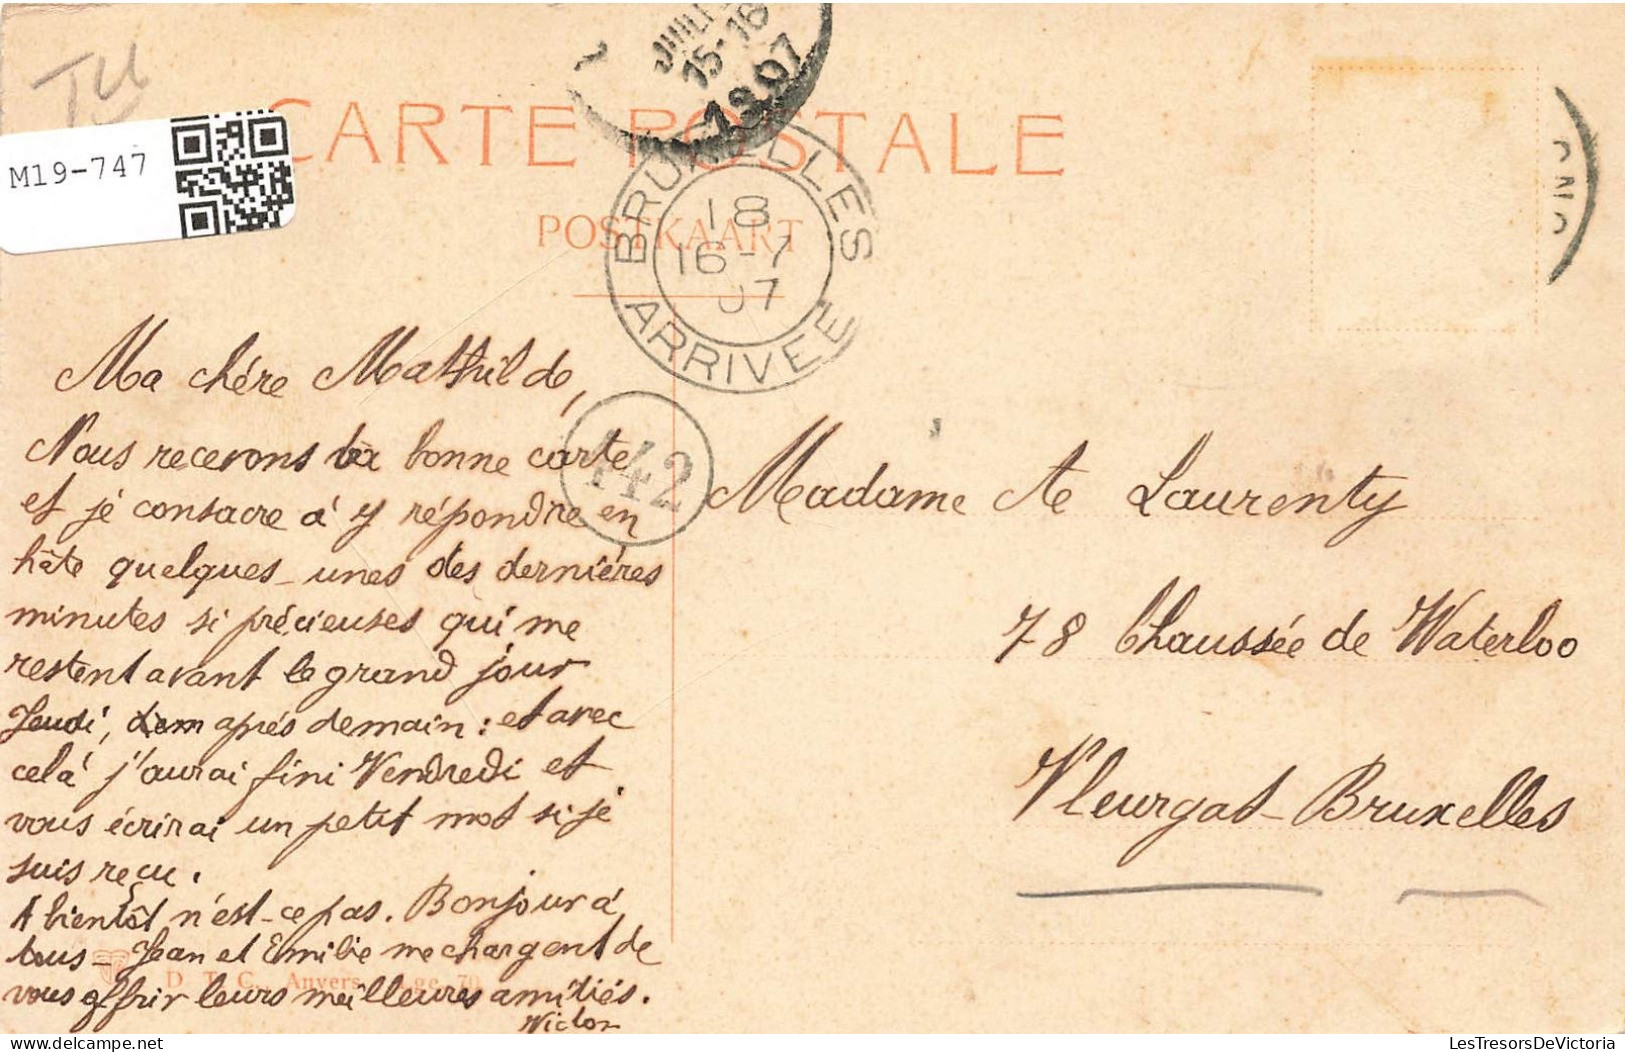 TU
M19-747
CARTE POSTALE
POSTKAART
15-16
1907
BRUXELLES
18
16-7
07
ARRIVEE
142
Ma chére Mathilde,
Nous recevons ta bonne carte
et je consacre á y répondre en
hâte quelques-unes des derniéres
minutes si précieuses qui me
restent avant le grand jour
Jeudi, après demain: et avec
celá j'aurai fini Vendredi et
vous écrirai un petit mot si je
suis reçu.
A bientôt n'est-ce pas. Bonjour á
tous - Jean et Emilie me chargent de
vous offrir leurs meilleures amitiés.
Victor
D. T. C., Anvers
Madame Laurenty
78 Chaussée de Waterloo
Vleurgat-Bruxelles
LesTresorsDeVictoria